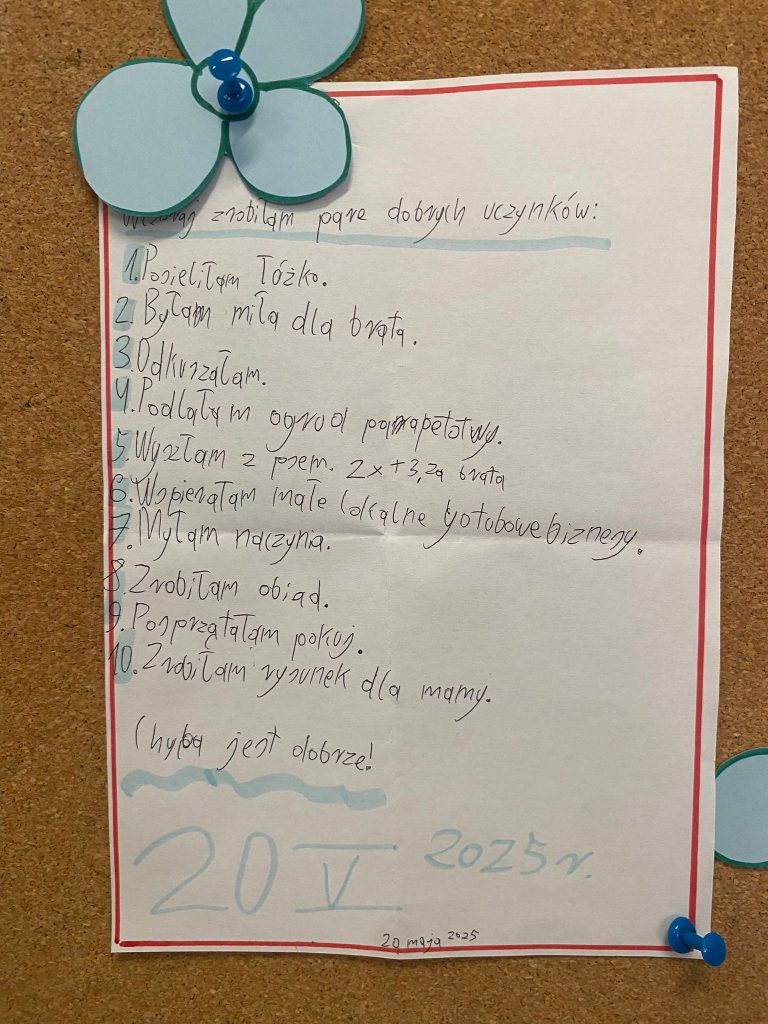 Wczoraj zrobiłam parę dobrych uczynków:
1. Pościeliłam łóżko.
2. Byłam miła dla brata.
3. Odkurzałam.
4. Podlałam ogrud parapetotwy.
5. Wyszłam z psem. 2x +3, za brata
6. Wspierałam małe lokalne żołobowe biznesy.
7. Myłam naczynia.
8. Zrobiłam obiad.
9. Posprzątałam pokuj.
10. Zrobiłam rysunek dla mamy.
Chyba jest dobrze!
20 V 2025 r.
20 maja 2025